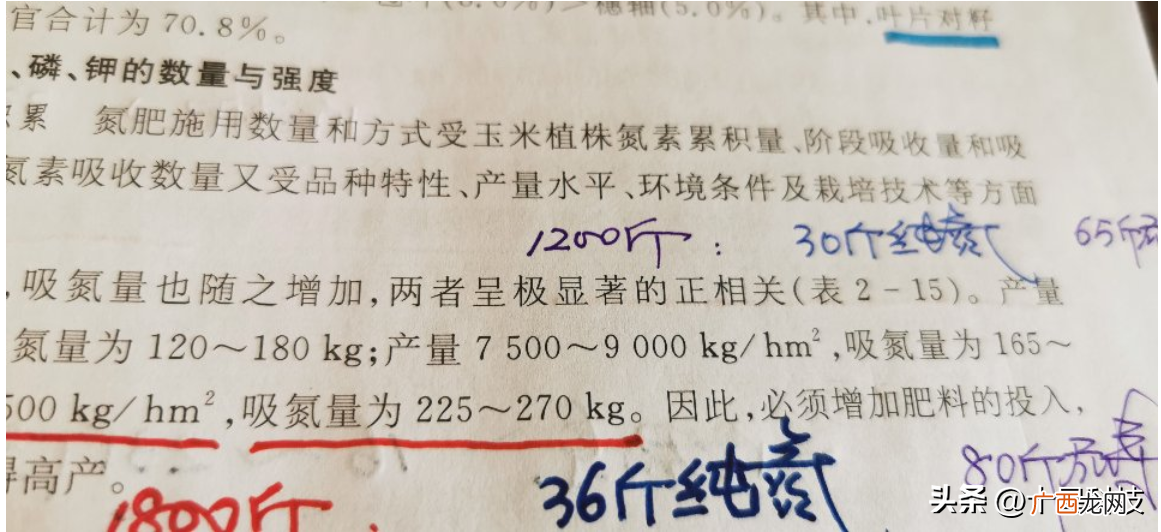 官合计为70.8%。
穗轴(5.0%)。其中,叶片对籽
、磷、钾的数量与强度
累 氮肥施用数量和方式受玉米植株氮素累积量、阶段吸收量和吸
氮素吸收数量又受品种特性、产量水平、环境条件及栽培技术等方面
1200斤: 30斤纯氮 65斤
,吸氮量也随之增加,两者呈极显著的正相关(表2-15)。产量
氮量为120~180 kg;产量7 500~9 000 kg/hm²,吸氮量为165~
500 kg/hm²,吸氮量为225~270 kg。因此,必须增加肥料的投入,
得高产。
1800斤 36斤纯氮 80斤
头条 @广西龙网支